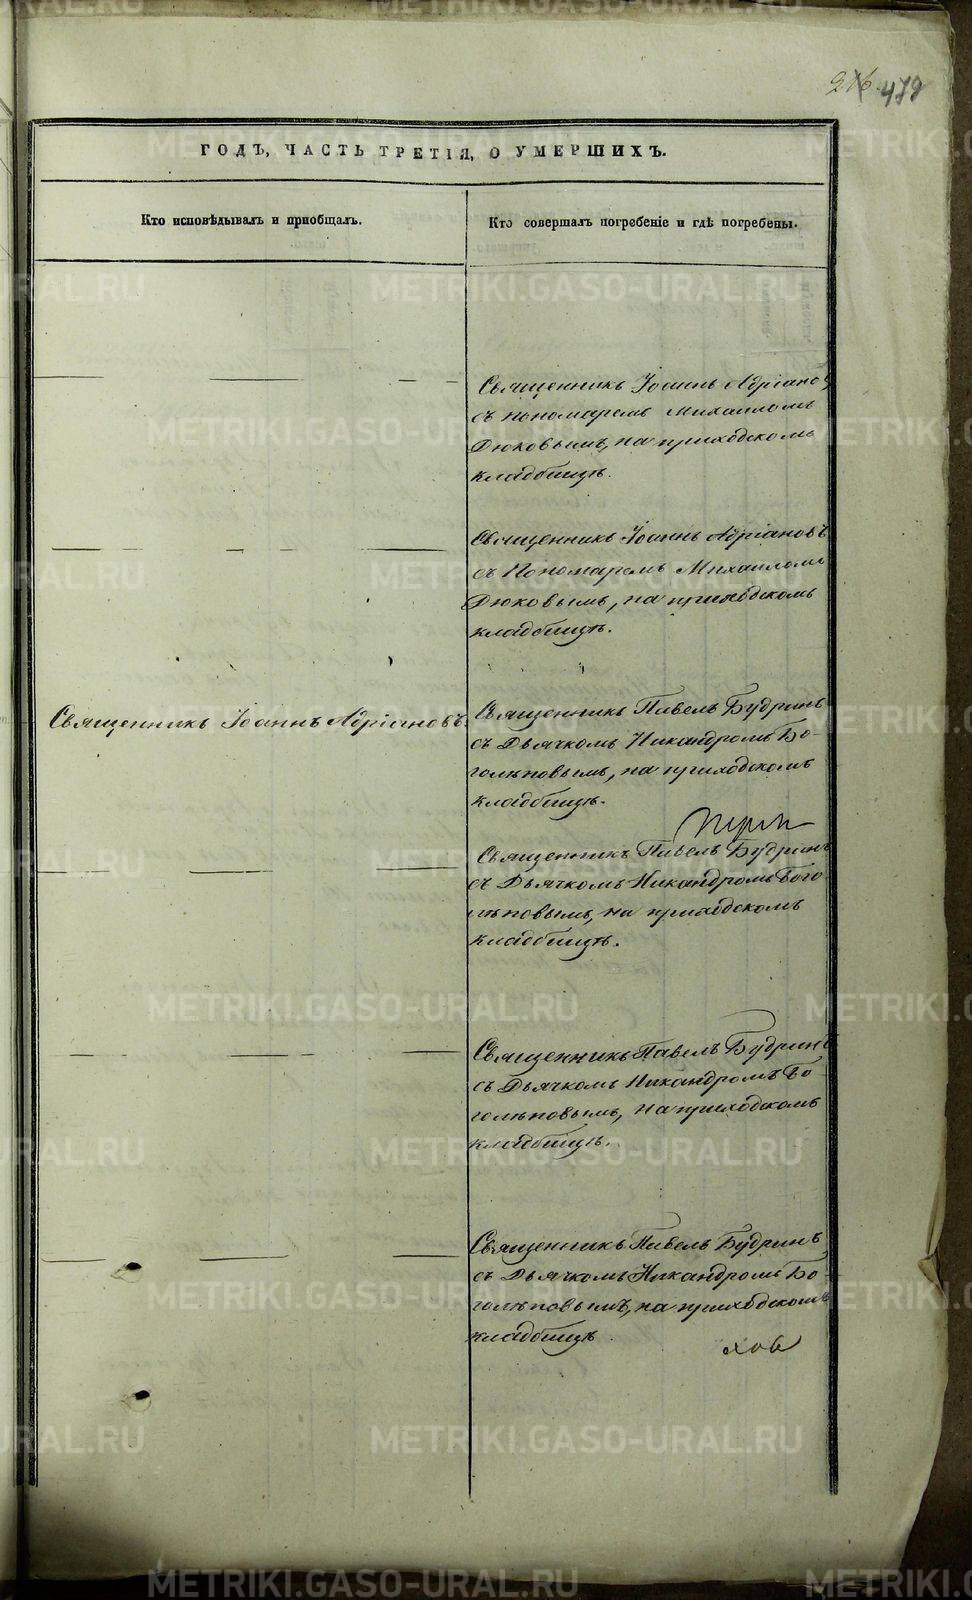 479
ГОДЪ, ЧАСТЬ ТРЕТІЯ, О УМЕРШИХЪ.
Кто исповѣдывалъ и приобщалъ.
Кто совершалъ погребеніе и гдѣ погребены.
Священникъ Іоаннъ Адріановъ
съ пономаремъ Михаиломъ
Дюковымъ, на приходскомъ
кладбищѣ.
Священникъ Іоаннъ Адріановъ
съ Пономаремъ Михаиломъ
Дюковымъ, на приходскомъ
кладбищѣ.
Священникъ Іоаннъ Адріановъ.
Священникъ Павелъ Будринъ
съ Дьячкомъ Никандромъ Бо-
голѣповымъ, на приходскомъ
кладбищѣ.
Священникъ Павелъ Будринъ
съ Дьячкомъ Никандромъ Бого
лѣповымъ, на приходскомъ
кладбищѣ.
Священникъ Павелъ Будринъ
съ Дьячкомъ Никандромъ Бо-
голѣповымъ, на приходскомъ
кладбищѣ.
Священникъ Павелъ Будринъ
съ Дьячкомъ Никандромъ Бо-
голѣповымъ, на приходскомъ
кладбищѣ.
METRIKI.GASO-URAL.RU